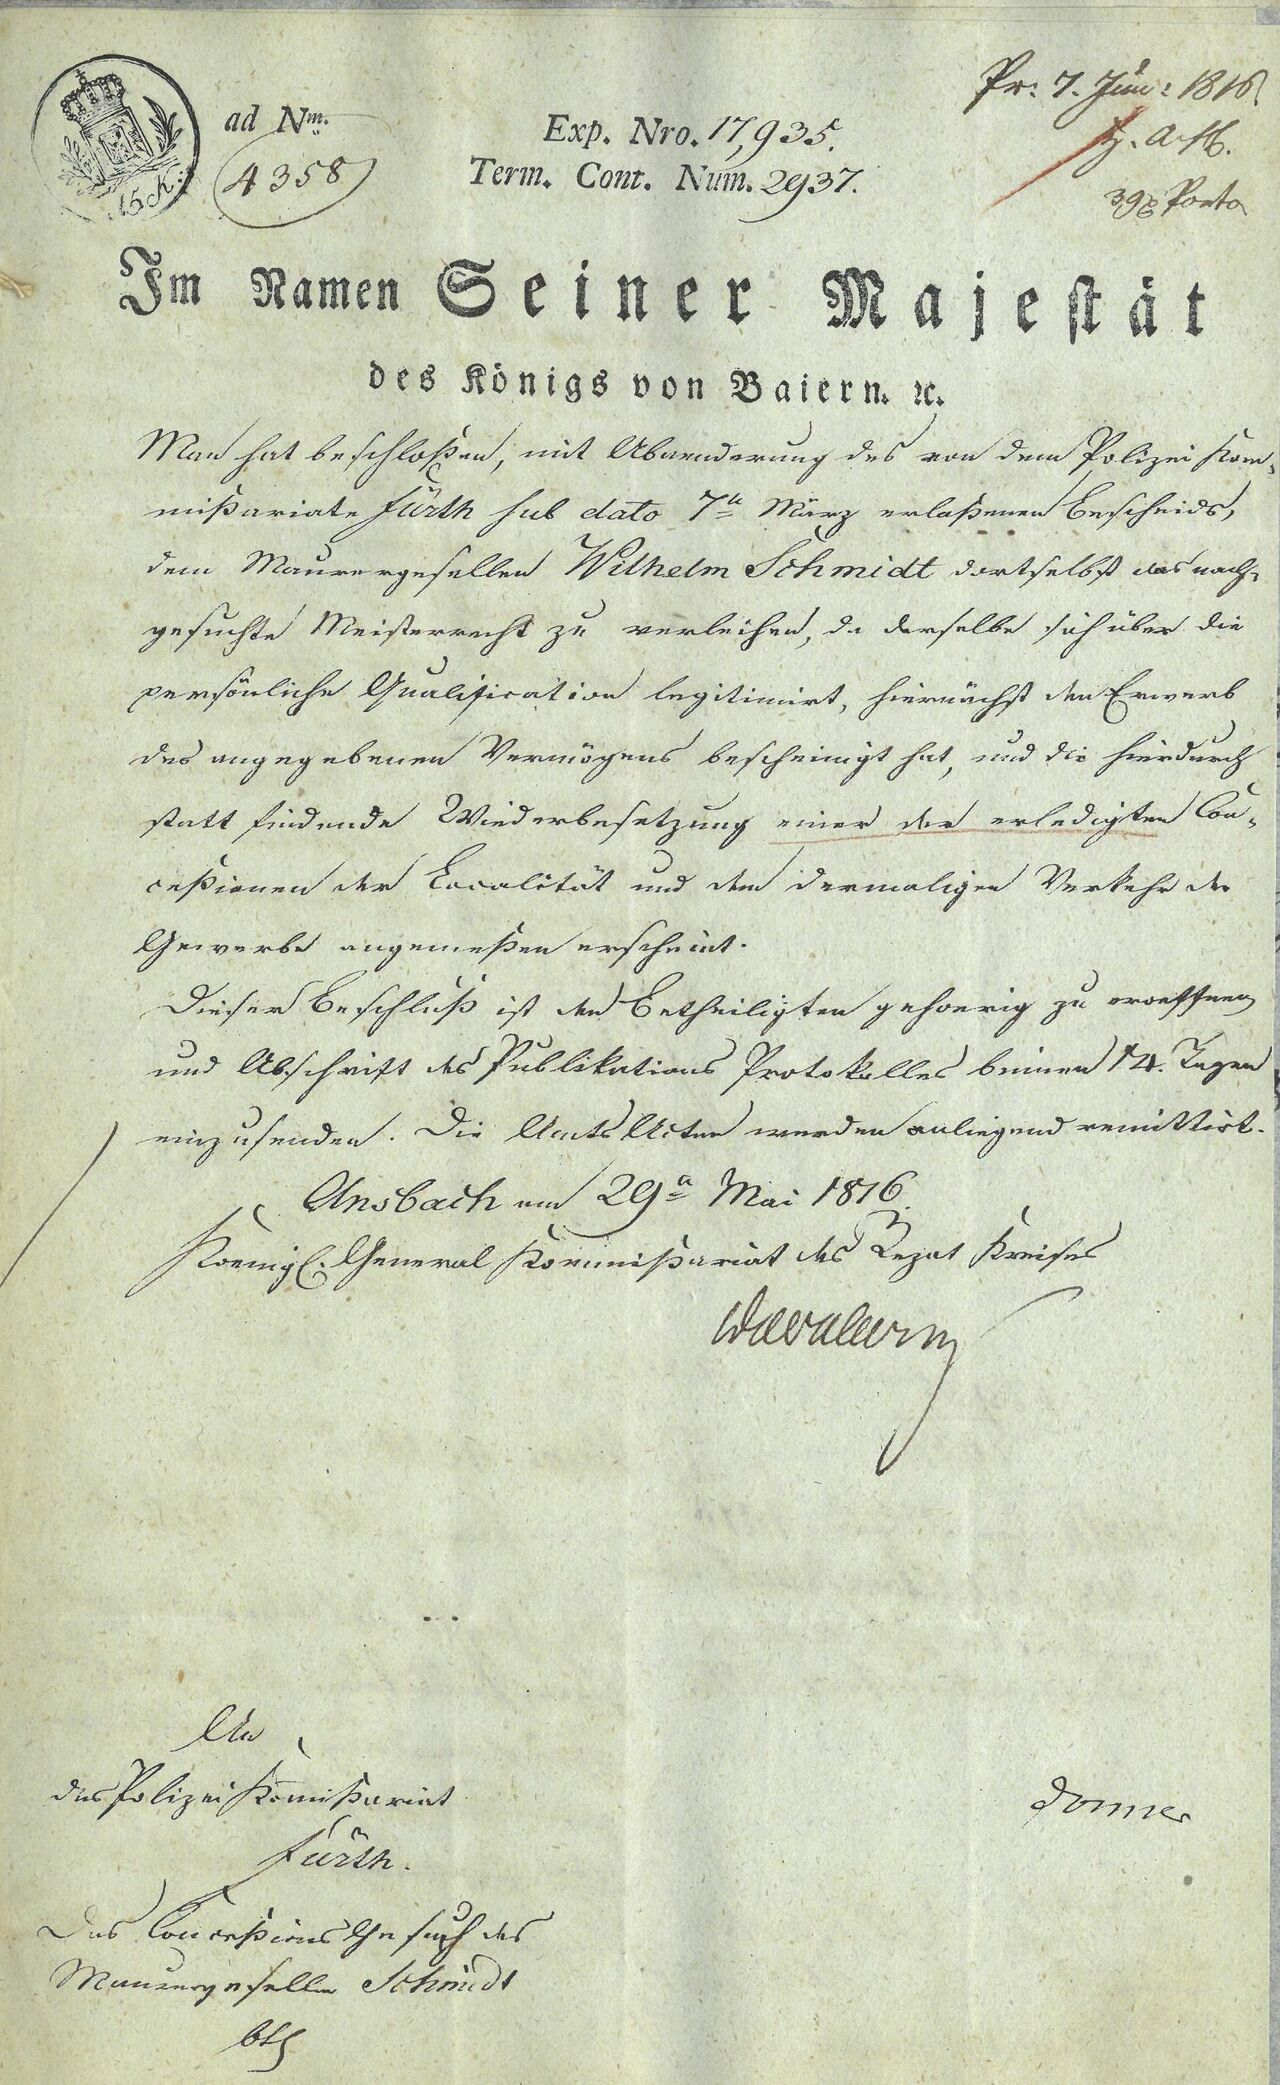 15 K.
ad Nm.
4358
Exp. Nro. 17,935.
Term. Cont. Num. 2937.
Pr: 7. Jun: 1816.
39 x Porto
Im Namen Seiner Majestät
des Königs von Baiern. ꝛc.
Man hat beschloßen, mit Abaenderung des von dem Polizei Kom-
mißariate Fürth sub dato 7ten März erlaßenen Bescheids,
dem Maurergesellen Wilhelm Schmidt dortselbst das nach-
gesuchte Meisterrecht zu verleihen, da derselbe sich über die
persönliche Qualification legitimirt, hiernächst den Erwerb
des angegebenen Vermögens bescheinigt hat, und die hierdurch
statt findende Wiederbesetzung einer der erledigten Con-
ceßionen der Localität und dem dermaligen Verkehr der
Gewerbe angemeßen erscheint.
Dieser Beschluß ist den Betheiligten gehoerig zu eroeffnen
und Abschrift des Publikations Protokolles binnen 14. Tagen
einzusenden. Die Amts Acten werden anliegend remittirt.
Ansbach am 29n Mai 1816.
Koenigl. General Kommißariat des Rezat Kreises
An
das Polizei Komißariat
Fürth.
Das Conceßions Gesuch des
Maurergesellen Schmidt
btf
Donner